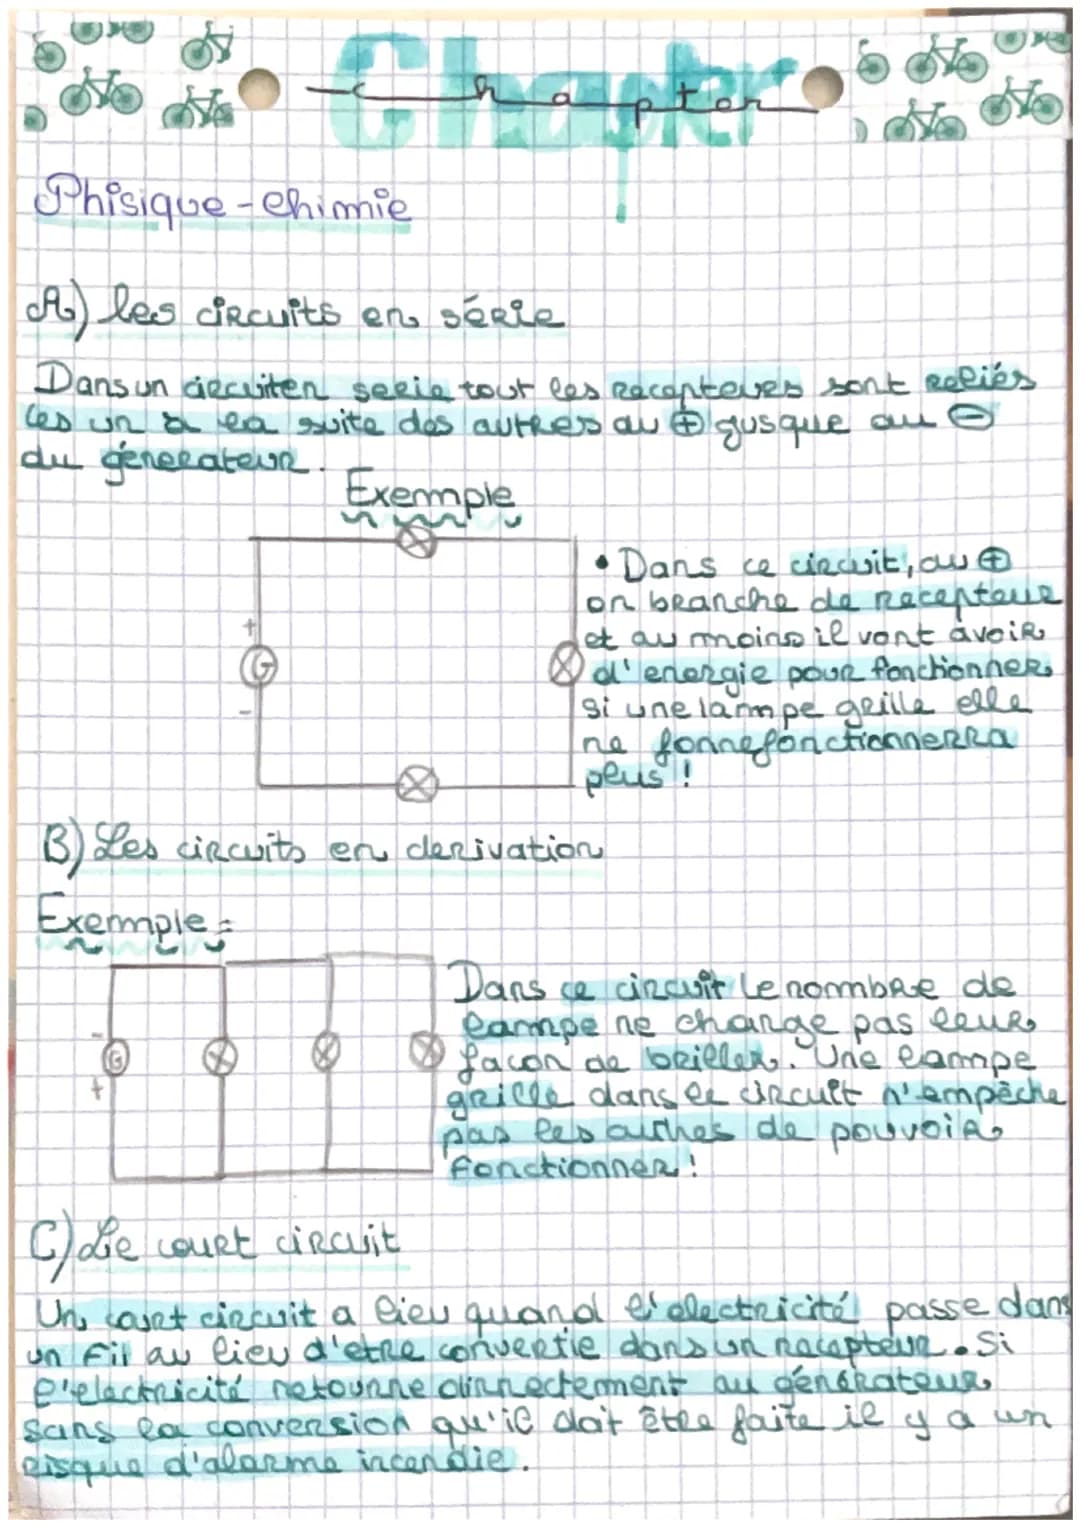 Chapter
Chapter
Phisique-chimie
A) les circuits en série
Dans un circuiten serie tout les recepteures sont reliés
les un à la suite des autres au ⊕ jusque au ⊖
du génerateur.
Exemple
• Dans ce circuit, au ⊕
on branche de recepteur
et au moins il vont avoir
d'energie pour fonctionner
si une lampe grille elle
ne fonnefonctionnerra
plus !
+
G
-
B) Les circuits en derivation
Exemple =
Dans ce circuit le nombre de
lampe ne change pas leur
facon de briller. Une lampe
grille dans le circuit n'empêche
pas les autres de pouvoir
fonctionner !
-
G
+
C) Le court circuit
Un court circuit a lieu quand l'electricité passe dans
un fil au lieu d'etre convertie dans un recepteur. Si
l'electricité retourne dirrectement au générateur
sans la conversion qu'il doit être faite il y a un
risque d'alarme incendie.